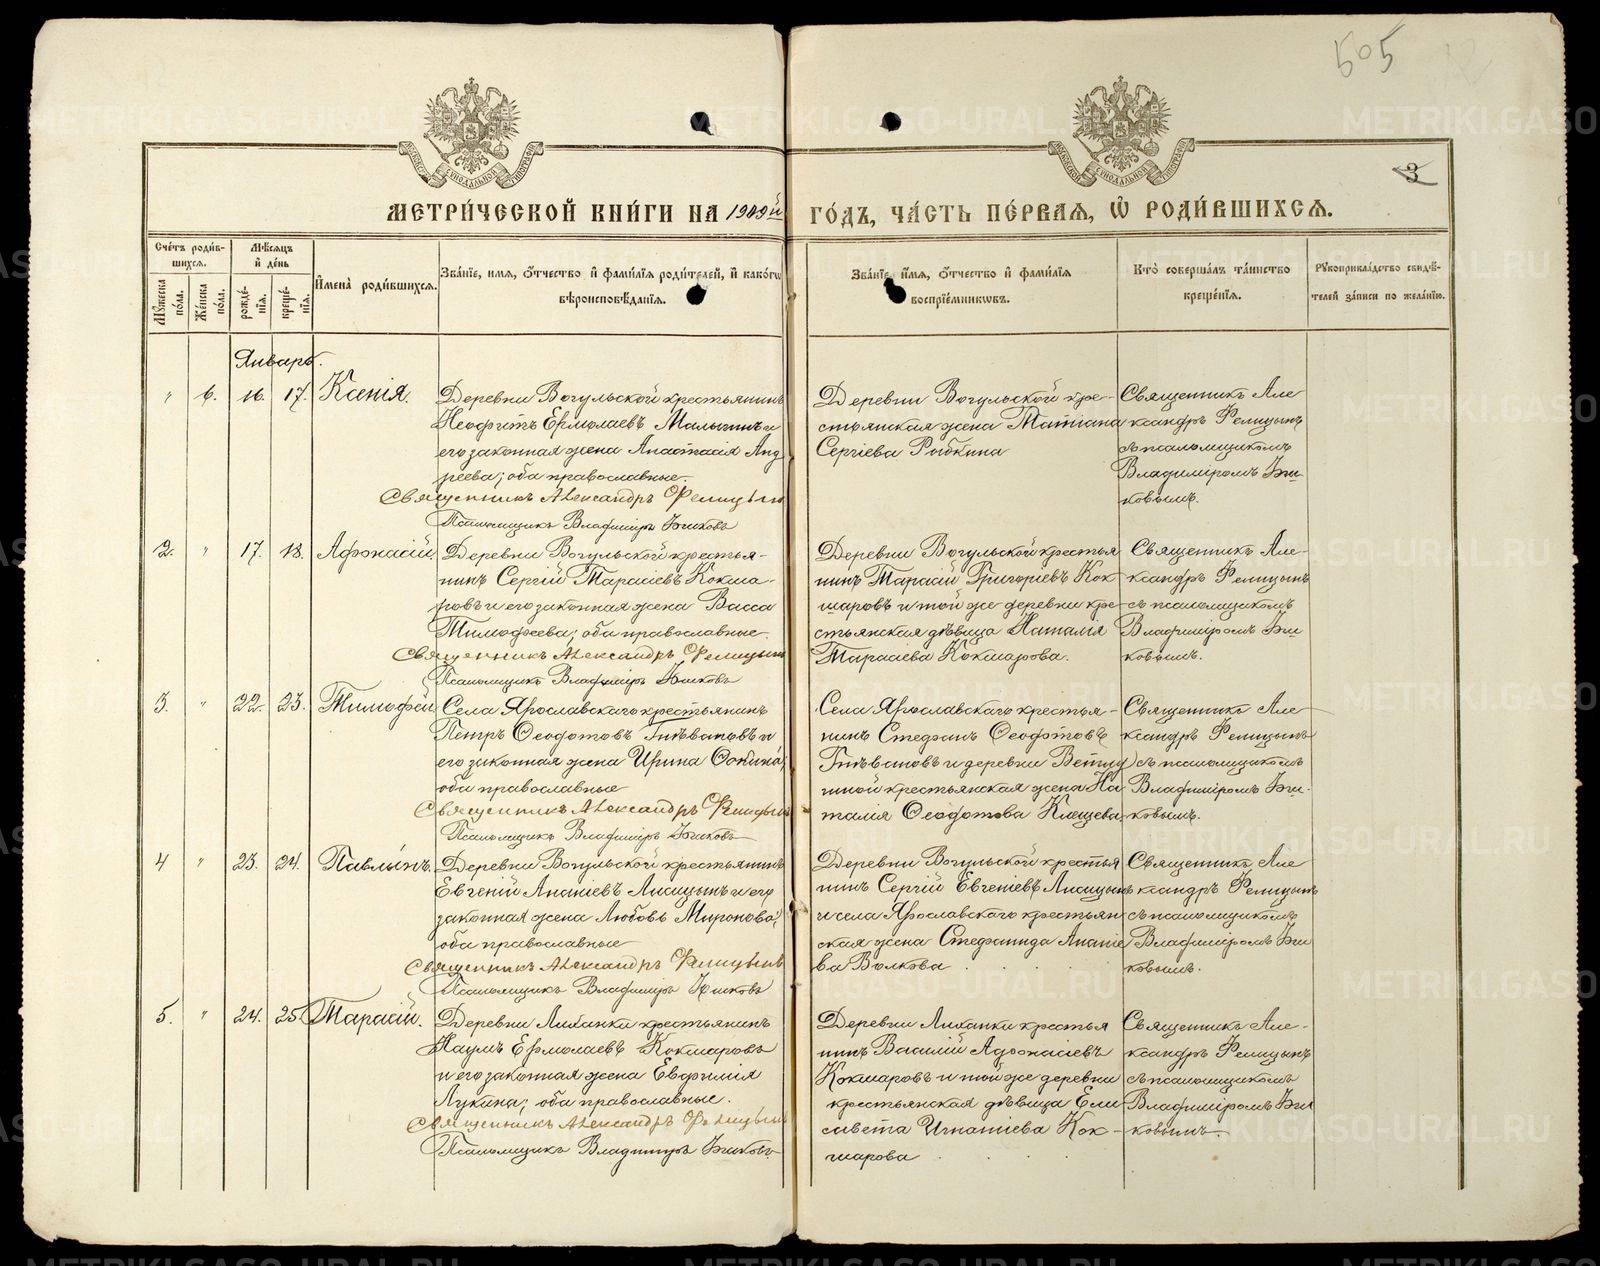 505
3
МЕТРИЧЕСКОЙ КНИГИ НА 1909й ГОДЪ, ЧАСТЬ ПЕРВАЯ, Ѿ РОДИВШИХСЯ.
Счетъ родившихся.
Мужеска пола.
Женска пола.
Мѣсяцъ и день
рожденія.
крещенія.
Имена родившихся.
Званіе, имя, отчество и фамилія родителей, и какогѡ вѣроисповѣданія.
Званіе, имя, отчество и фамилія воспріемникѡвъ.
Кто совершалъ таинство крещенія.
Рукоприкладство свидѣтелей записи по желанію.
Январь.
" 6. 16. 17. Ксенія.
Деревни Вогульской крестьянинъ
Неофитъ Ермолаевъ Малыгинъ и
его законная жена Анастасія Анд
реева; оба православные.
Священникъ Александръ Фелицынъ
Псаломщикъ Владиміръ
Деревни Вогульской кре-
стьянская жена Татіана
Сергіева Рыбкина
Священникъ Але
ксандръ Фелицынъ
съ псаломщикомъ
Владиміромъ
ковымъ.
2. " 17. 18. Афонасій.
Деревни Вогульской крестья-
нинъ Сергій Тарасіевъ Кокша-
ровъ и его законная жена Васса
Тимофеева; оба православные.
Священникъ Александръ Фелицынъ
Псаломщикъ Владиміръ
Деревни Вогульской крестья
нинъ Тарасій Григоріевъ Кок
шаровъ и той же деревни кре-
стьянская дѣвица Наталія
Тарасіева Кокшарова.
Священникъ Але-
ксандръ Фелицынъ
съ псаломщикомъ
Владиміромъ
ковымъ.
3. " 22. 23. Тимофей
Села Ярославскаго крестьянинъ
Петръ Ѳеодотовъ Гнѣвановъ и
его законная жена Ирина
оба православные
Священникъ Александръ Фелицынъ
Псаломщикъ Владиміръ
Села Ярославскаго крестья-
нинъ Стефанъ Ѳеодотовъ
Гнѣвановъ и деревни
крестьянская жена На
талія Ѳеодотова Клещева
Священникъ Але
ксандръ Фелицынъ
съ псаломщикомъ
Владиміромъ
ковымъ.
4 " 23. 24. Павлинъ.
Деревни Вогульской крестьянинъ
Евгеній Ананіевъ Лисицынъ и его
законная жена Любовь Миронова;
оба православные
Священникъ Александръ Фелицынъ
Псаломщикъ Владиміръ
Деревни Вогульской крестья
нинъ Сергій Евгеніевъ Лисицынъ
и села Ярославскаго крестьян
ская жена Стефанида Ананіе
ва Волкова
Священникъ Але
ксандръ Фелицынъ
съ псаломщикомъ
Владиміромъ
ковымъ.
5. " 24. 25. Тарасій.
Деревни Лиханки крестьянинъ
Наумъ Ермолаевъ Кокшаровъ
и его законная жена Евфимія
Лукина; оба православные.
Священникъ Александръ Фелицынъ
Псаломщикъ Владиміръ
Деревни Лиханки крестья
нинъ Василій Афонасіевъ
Кокшаровъ и той же деревни
крестьянская дѣвица Ели
савета Игнатіева Кок-
шарова
Священникъ Але-
ксандръ Фелицынъ
съ псаломщикомъ
Владиміромъ
ковымъ.
METRIKI.GASO-URAL.RU